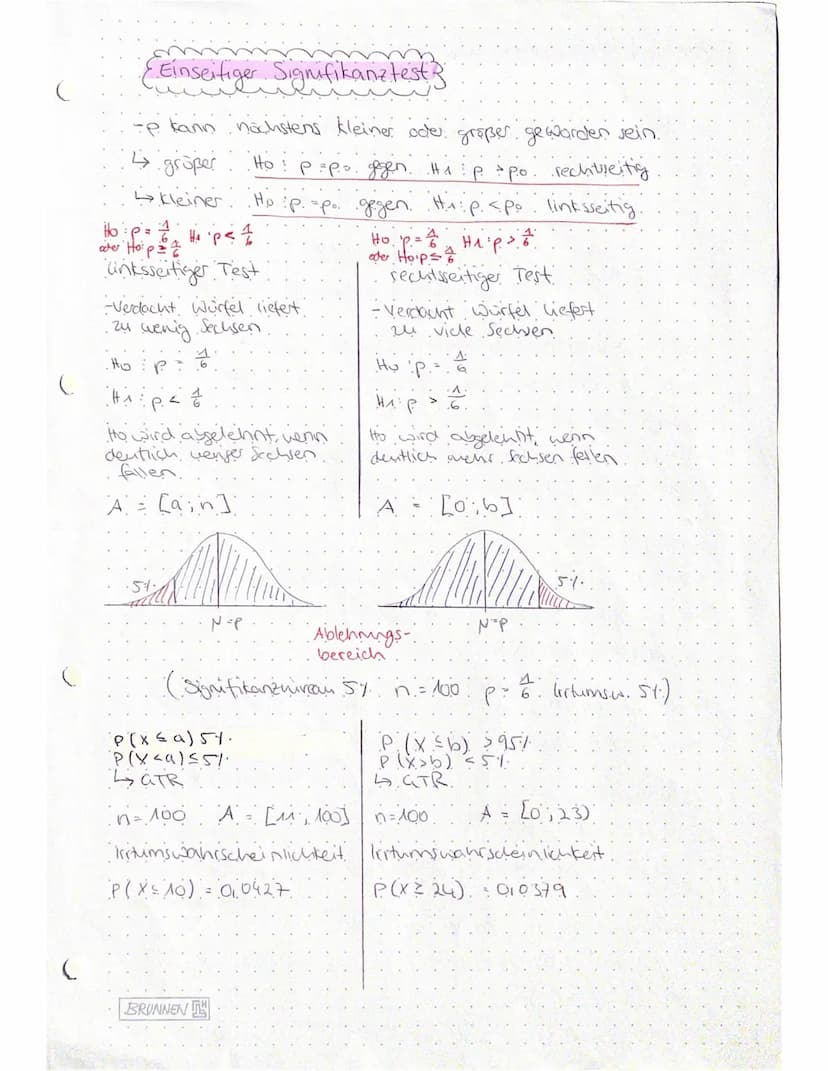 Einseitiger Signifikanztest
- p kann höchstens kleiner oder größer geworden sein.
↳ größer H0 : p = p0 gegen H1 : p > p0 rechtsseitig
↳ kleiner H0 : p = p0 gegen H1 : p < p0 linksseitig
H0 : p = 1/6 H1 : p < 1/6
oder H0: p ≥ 1/6
linksseitiger Test
- Verdacht Würfel liefert
zu wenig Sechsen
H0 : p = 1/6
H1 : p < 1/6
H0 wird abgelehnt, wenn
deutlich weniger Sechsen
fallen
A = [a ; n]
5%
µ = p
H0 : p = 1/6 H1 : p > 1/6
oder H0: p ≤ 1/6
rechtsseitiger Test
- Verdacht Würfel liefert
zu viele Sechsen
H0 : p = 1/6
H1 : p > 1/6
H0 wird abgelehnt, wenn
deutlich mehr Sechsen fallen
A = [0 ; b]
5%
µ = p
Ablehnungs-
bereich
(Signifikanzniveau 5% n = 100 p = 1/6 Irrtumsw. 5%)
P(X ≤ a) 5%
P(X < a) ≤ 5%
↳ GTR
n = 100 A = [11 ; 100]
Irrtumswahrscheinlichkeit
P(X ≤ 10) = 0,0427
P(X ≤ b) > 95%
P(X > b) < 5%
↳ GTR
n = 100 A = [0 ; 23)
Irrtumswahrscheinlichkeit
P(X ≥ 24) = 0,0379
BRUNNEN